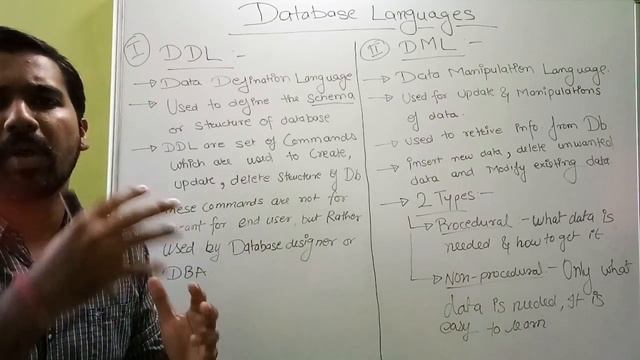 Database Languages
I DDL :-
→ Data Defination Language
→ Used to define the Schema
or structure of database
→ DDL are set of Commands
which are used to Create,
update, delete structure of Db
These commands are not for
for end user, but Rather
used by Database designer or
DBA
II DML :-
→ Data Manipulation Language.
→ Used for update & Manipulations
of data.
→ Used to retrive info from Db
→ insert new data, delete unwanted
data and Modify existing data
→ 2 Types -
→ Procedural - what data is
needed & how to get it
→ Non-procedural - Only what
data is needed, It is
easy to learn